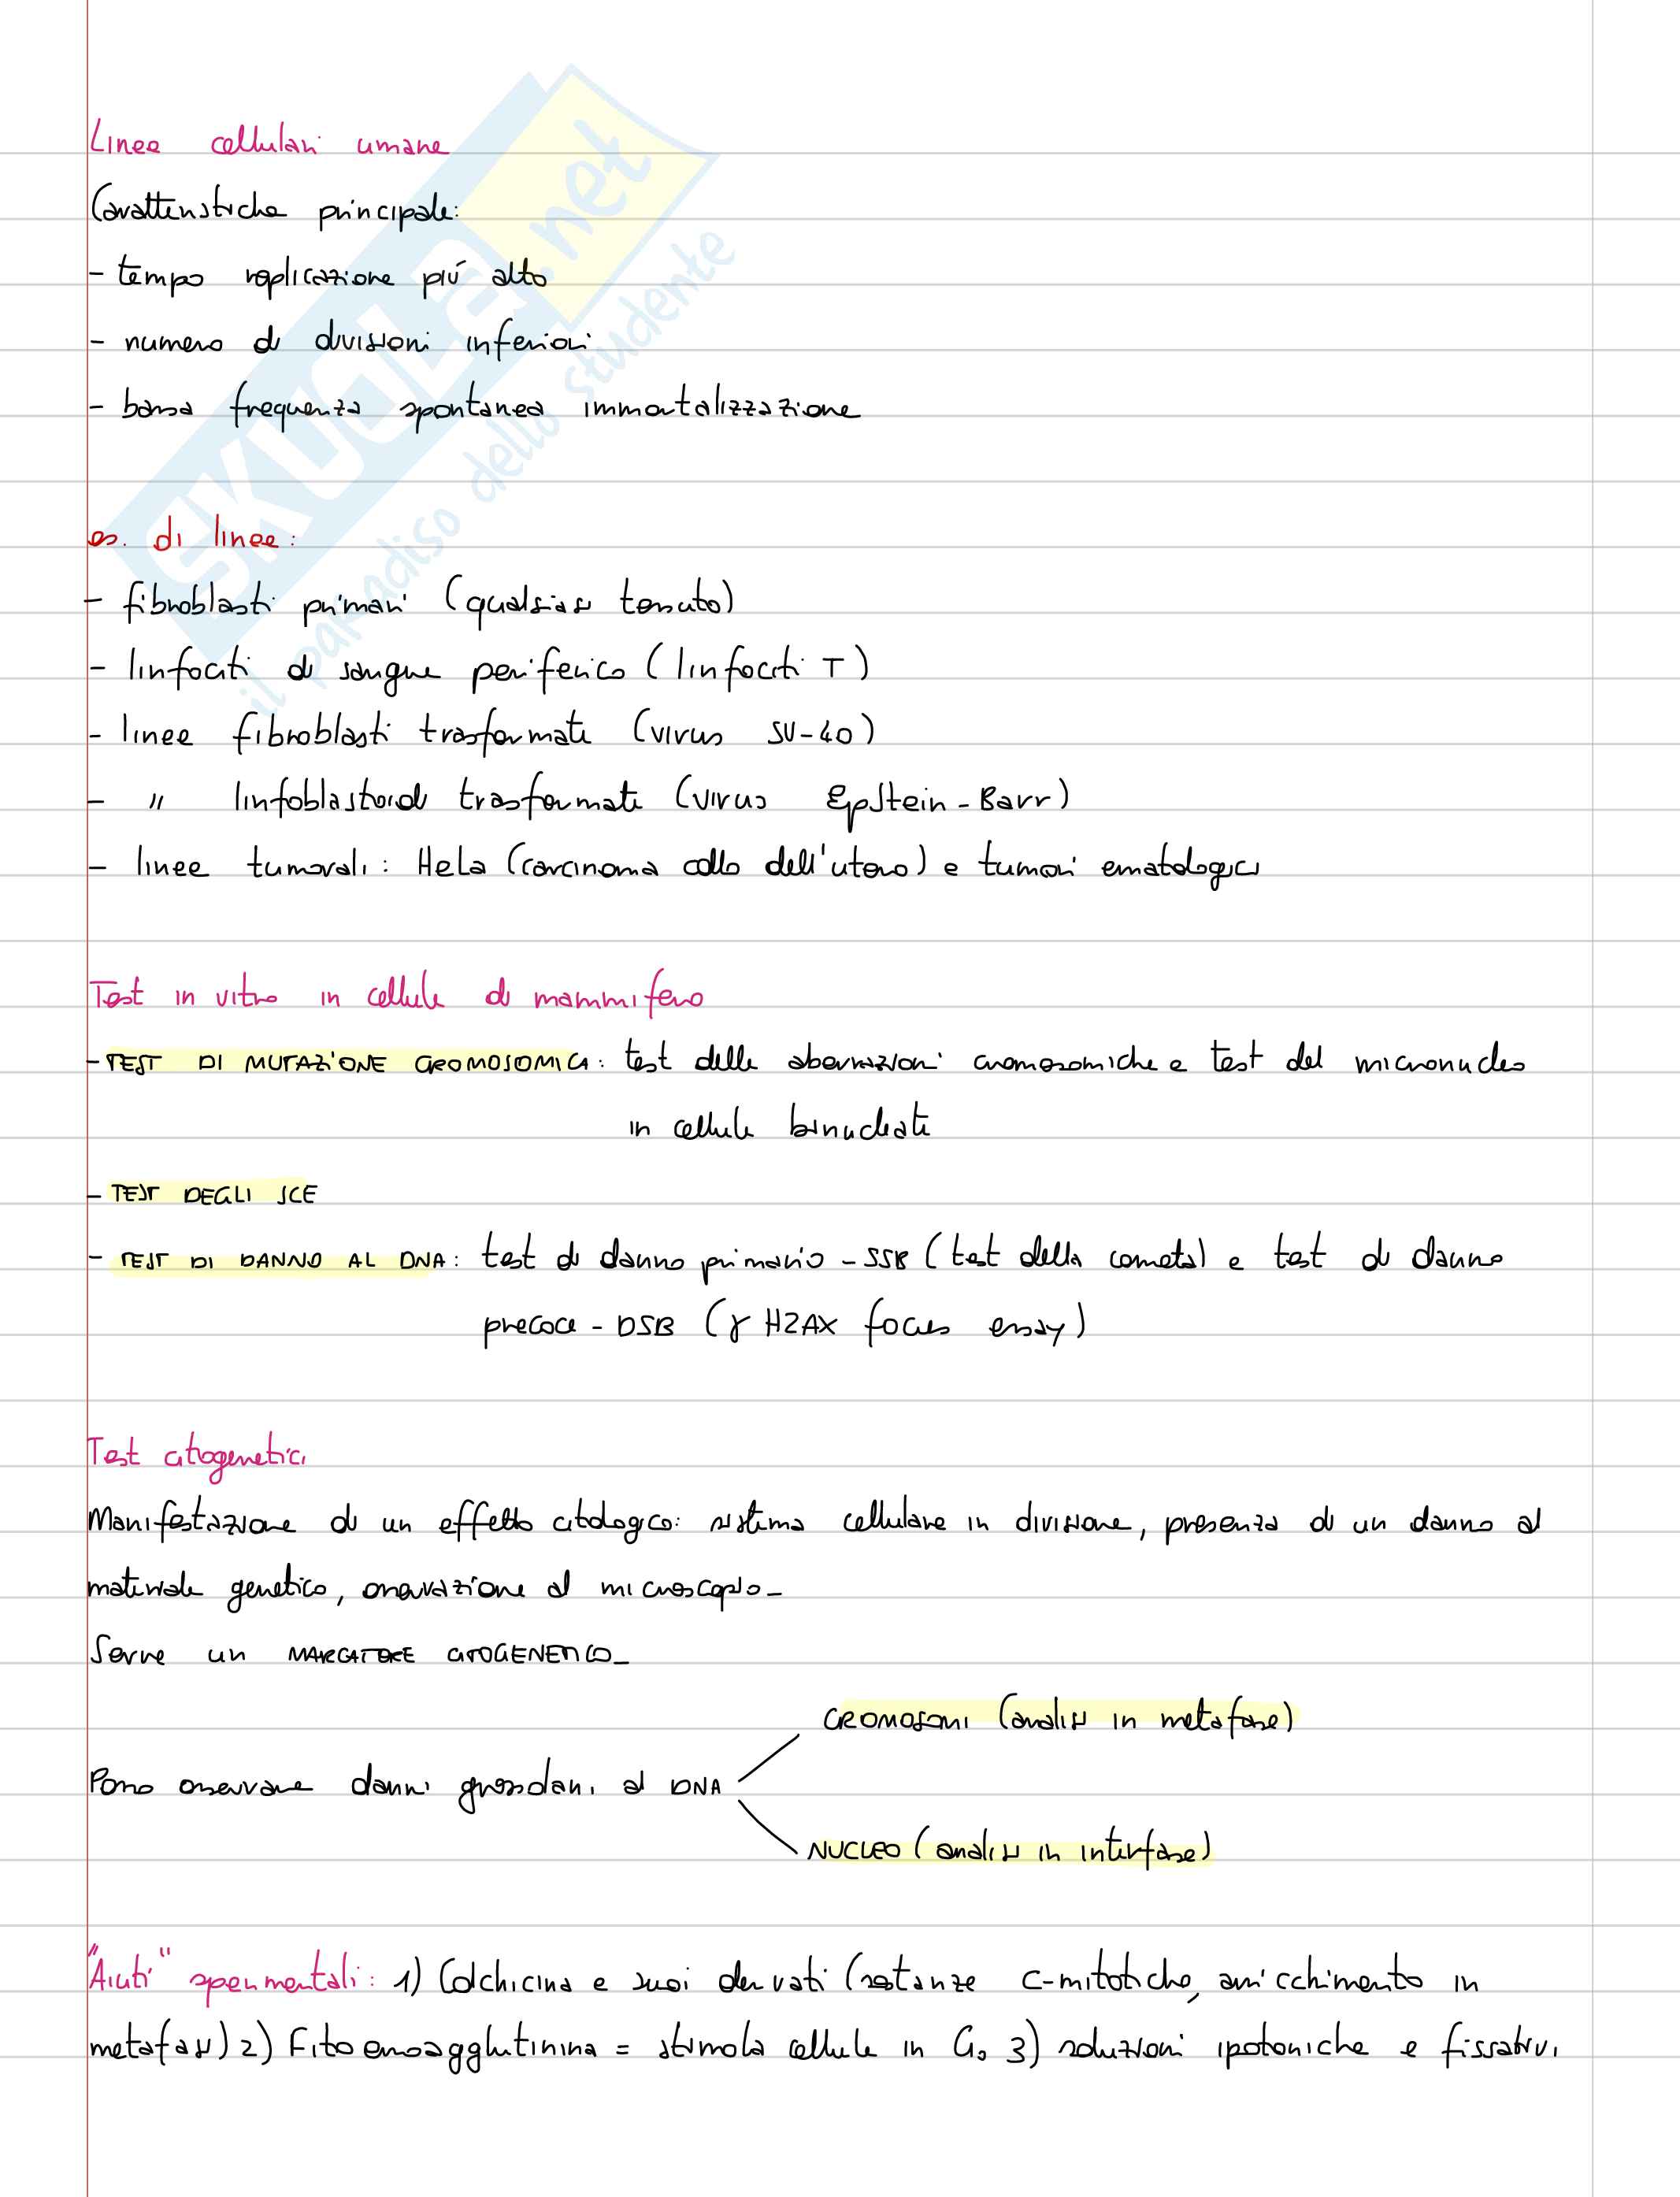 Linee cellulari umane
Caratteristiche principale:
- tempo replicazione più alto
- numero di divisioni inferiori
- bassa frequenza spontanea immortalizzazione
es. di linee:
- fibroblasti primari (qualsiasi tessuto)
- linfociti di sangue periferico (linfociti T)
- linee fibroblasti trasformate (virus SV-40)
- " linfoblastoidi trasformate (virus Epstein-Barr)
- linee tumorali: HeLa (carcinoma collo dell'utero) e tumori ematologici
Test in vitro in cellule di mammifero
- TEST DI MUTAZIONE CROMOSOMICA: test delle aberrazioni cromosomiche e test del micronucleo
in cellule binucleate
- TEST DEGLI SCE
- TEST DI DANNO AL DNA: test di danno primario - SSB (test della cometa) e test di danno
precoce - DSB (γ H2AX focus essay)
Test citogenetici
Manifestazione di un effetto citologico: sistema cellulare in divisione, presenza di un danno al
materiale genetico, osservazione al microscopio_
Serve un MARCATORE CITOGENETICO_
CROMOSOMI (analisi in metafase)
Posso osservare danni grossolani al DNA
NUCLEO (analisi in interfase)
"Aiuti" sperimentali: 1) Colchicina e suoi derivati (sostanze c-mitotiche, arricchimento in
metafasi) 2) Fitoemoagglutinina = stimola cellule in G₀ 3) soluzioni ipotoniche e fissativi
SKUOLA.net
il paradiso dello studente